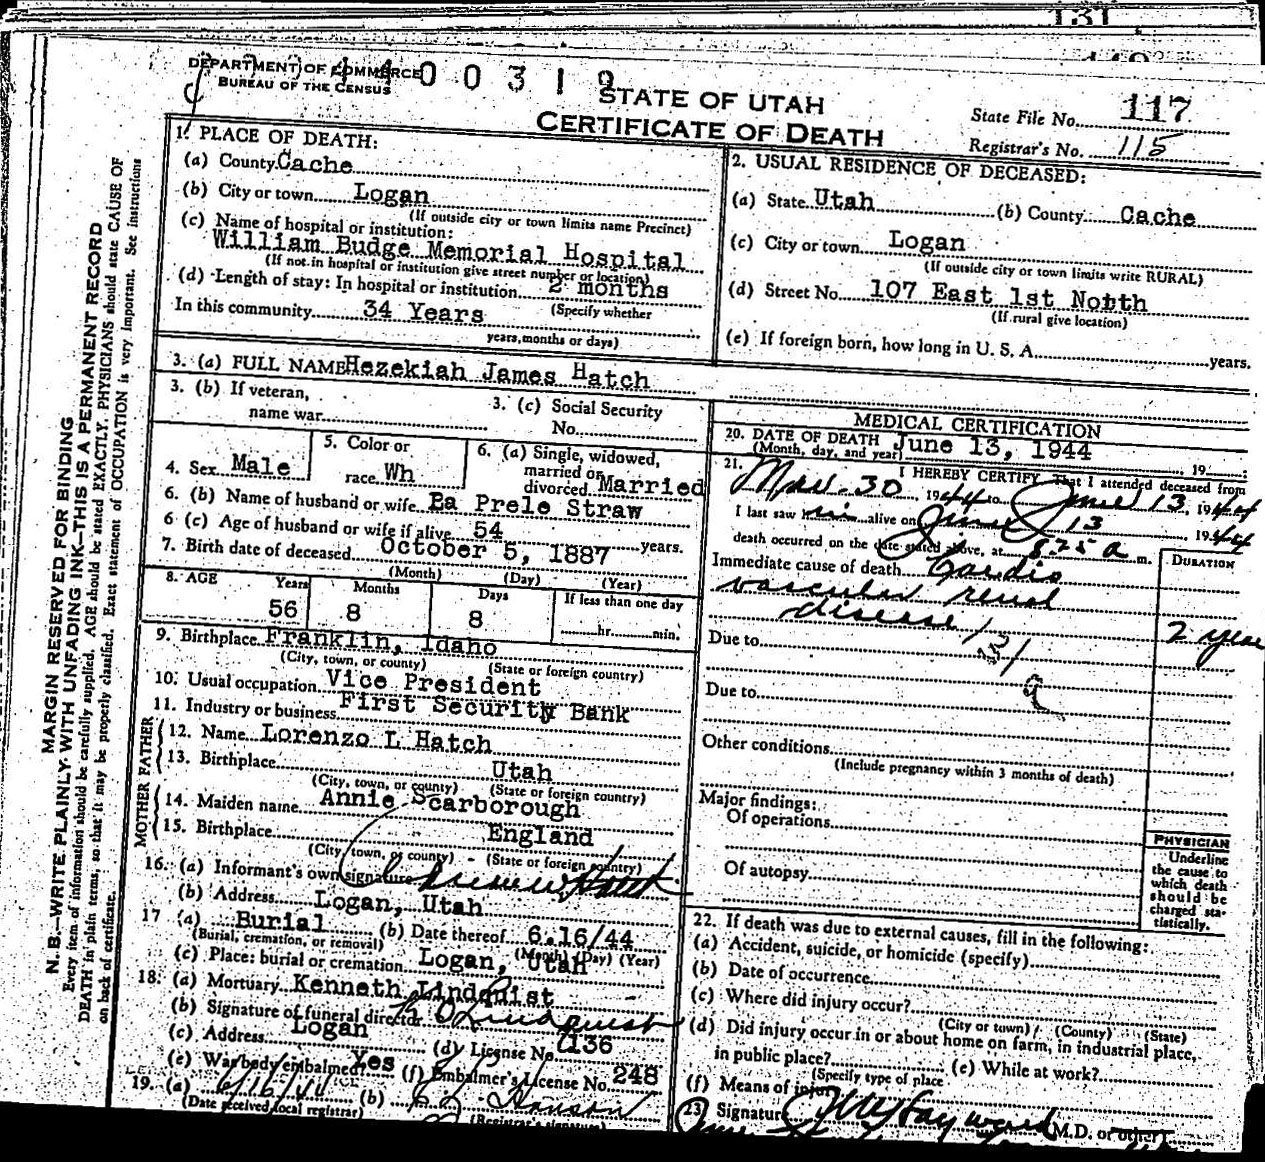 131
DEPARTMENT OF COMMERCE
BUREAU OF THE CENSUS
4400319
STATE OF UTAH
CERTIFICATE OF DEATH
State File No. 117
Registrar's No. 115
MARGIN RESERVED FOR BINDING
N. B.—WRITE PLAINLY WITH UNFADING INK—THIS IS A PERMANENT RECORD
Every item of information should be carefully supplied. AGE should be stated EXACTLY. PHYSICIANS should state CAUSE OF
DEATH in plain terms, so that it may be properly classified. Exact statement of OCCUPATION is very important. See instructions
on back of certificate.
1. PLACE OF DEATH:
(a) County Cache
(b) City or town Logan
(If outside city or town limits name Precinct)
(c) Name of hospital or institution:
William Budge Memorial Hospital
(If not in hospital or institution give street number or location)
(d) Length of stay: In hospital or institution 2 months
(Specify whether
In this community 34 Years
years, months or days)
2. USUAL RESIDENCE OF DECEASED:
(a) State Utah (b) County Cache
(c) City or town Logan
(If outside city or town limits write RURAL)
(d) Street No. 107 East 1st Nobth
(If rural give location)
(e) If foreign born, how long in U. S. A. years.
3. (a) FULL NAME Hezekiah James Hatch
3. (b) If veteran,
name war
3. (c) Social Security
No.
4. Sex Male
5. Color or
race Wh
6. (a) Single, widowed,
married or
divorced Married
6. (b) Name of husband or wife Ea Prele Straw
6 (c) Age of husband or wife if alive 54 years.
7. Birth date of deceased October 5, 1887
(Month) (Day) (Year)
8. AGE Years Months Days If less than one day
56 8 8 hr. min.
9. Birthplace Franklin, Idaho
(City, town, or county) (State or foreign country)
10. Usual occupation Vice President
11. Industry or business First Security Bank
FATHER
12. Name Lorenzo L Hatch
13. Birthplace Utah
(City, town, or county) (State or foreign country)
MOTHER
14. Maiden name Annie Scarborough
15. Birthplace England
(City, town, or county) (State or foreign country)
16. (a) Informant's own signature Hatch
(b) Address Logan, Utah
17 (a) Burial (b) Date thereof 6.16/44
(Burial, cremation, or removal) (Month) (Day) (Year)
(c) Place: burial or cremation Logan, Utah
18. (a) Mortuary Kenneth Lindquist
(b) Signature of funeral director Lindquist
(c) Address Logan (d) License No. 136
(e) Was body embalmed Yes (f) Embalmer's License No. 248
19. (a) 6/16/44 (b) Hanson
(Date received local registrar) (Registrar's signature)
MEDICAL CERTIFICATION
20. DATE OF DEATH June 13, 1944
(Month, day, and year) , 19
21. I HEREBY CERTIFY, That I attended deceased from
Mar. 30, 1944 to June 13, 1944
I last saw him alive on June 13 1944
death occurred on the date stated above, at 8:25 a m.
DURATION
Immediate cause of death Cardio
vascular renal
disease 2 year
131
Due to
9
Due to
Other conditions
(Include pregnancy within 3 months of death)
Major findings:
Of operations
Of autopsy
PHYSICIAN
Underline
the cause to
which death
should be
charged sta-
tistically.
22. If death was due to external causes, fill in the following:
(a) Accident, suicide, or homicide (specify)
(b) Date of occurrence
(c) Where did injury occur?
(City or town) (County) (State)
(d) Did injury occur in or about home on farm, in industrial place,
in public place? (e) While at work?
(Specify type of place
(f) Means of injury
23. Signature Hayward M.D. or other)